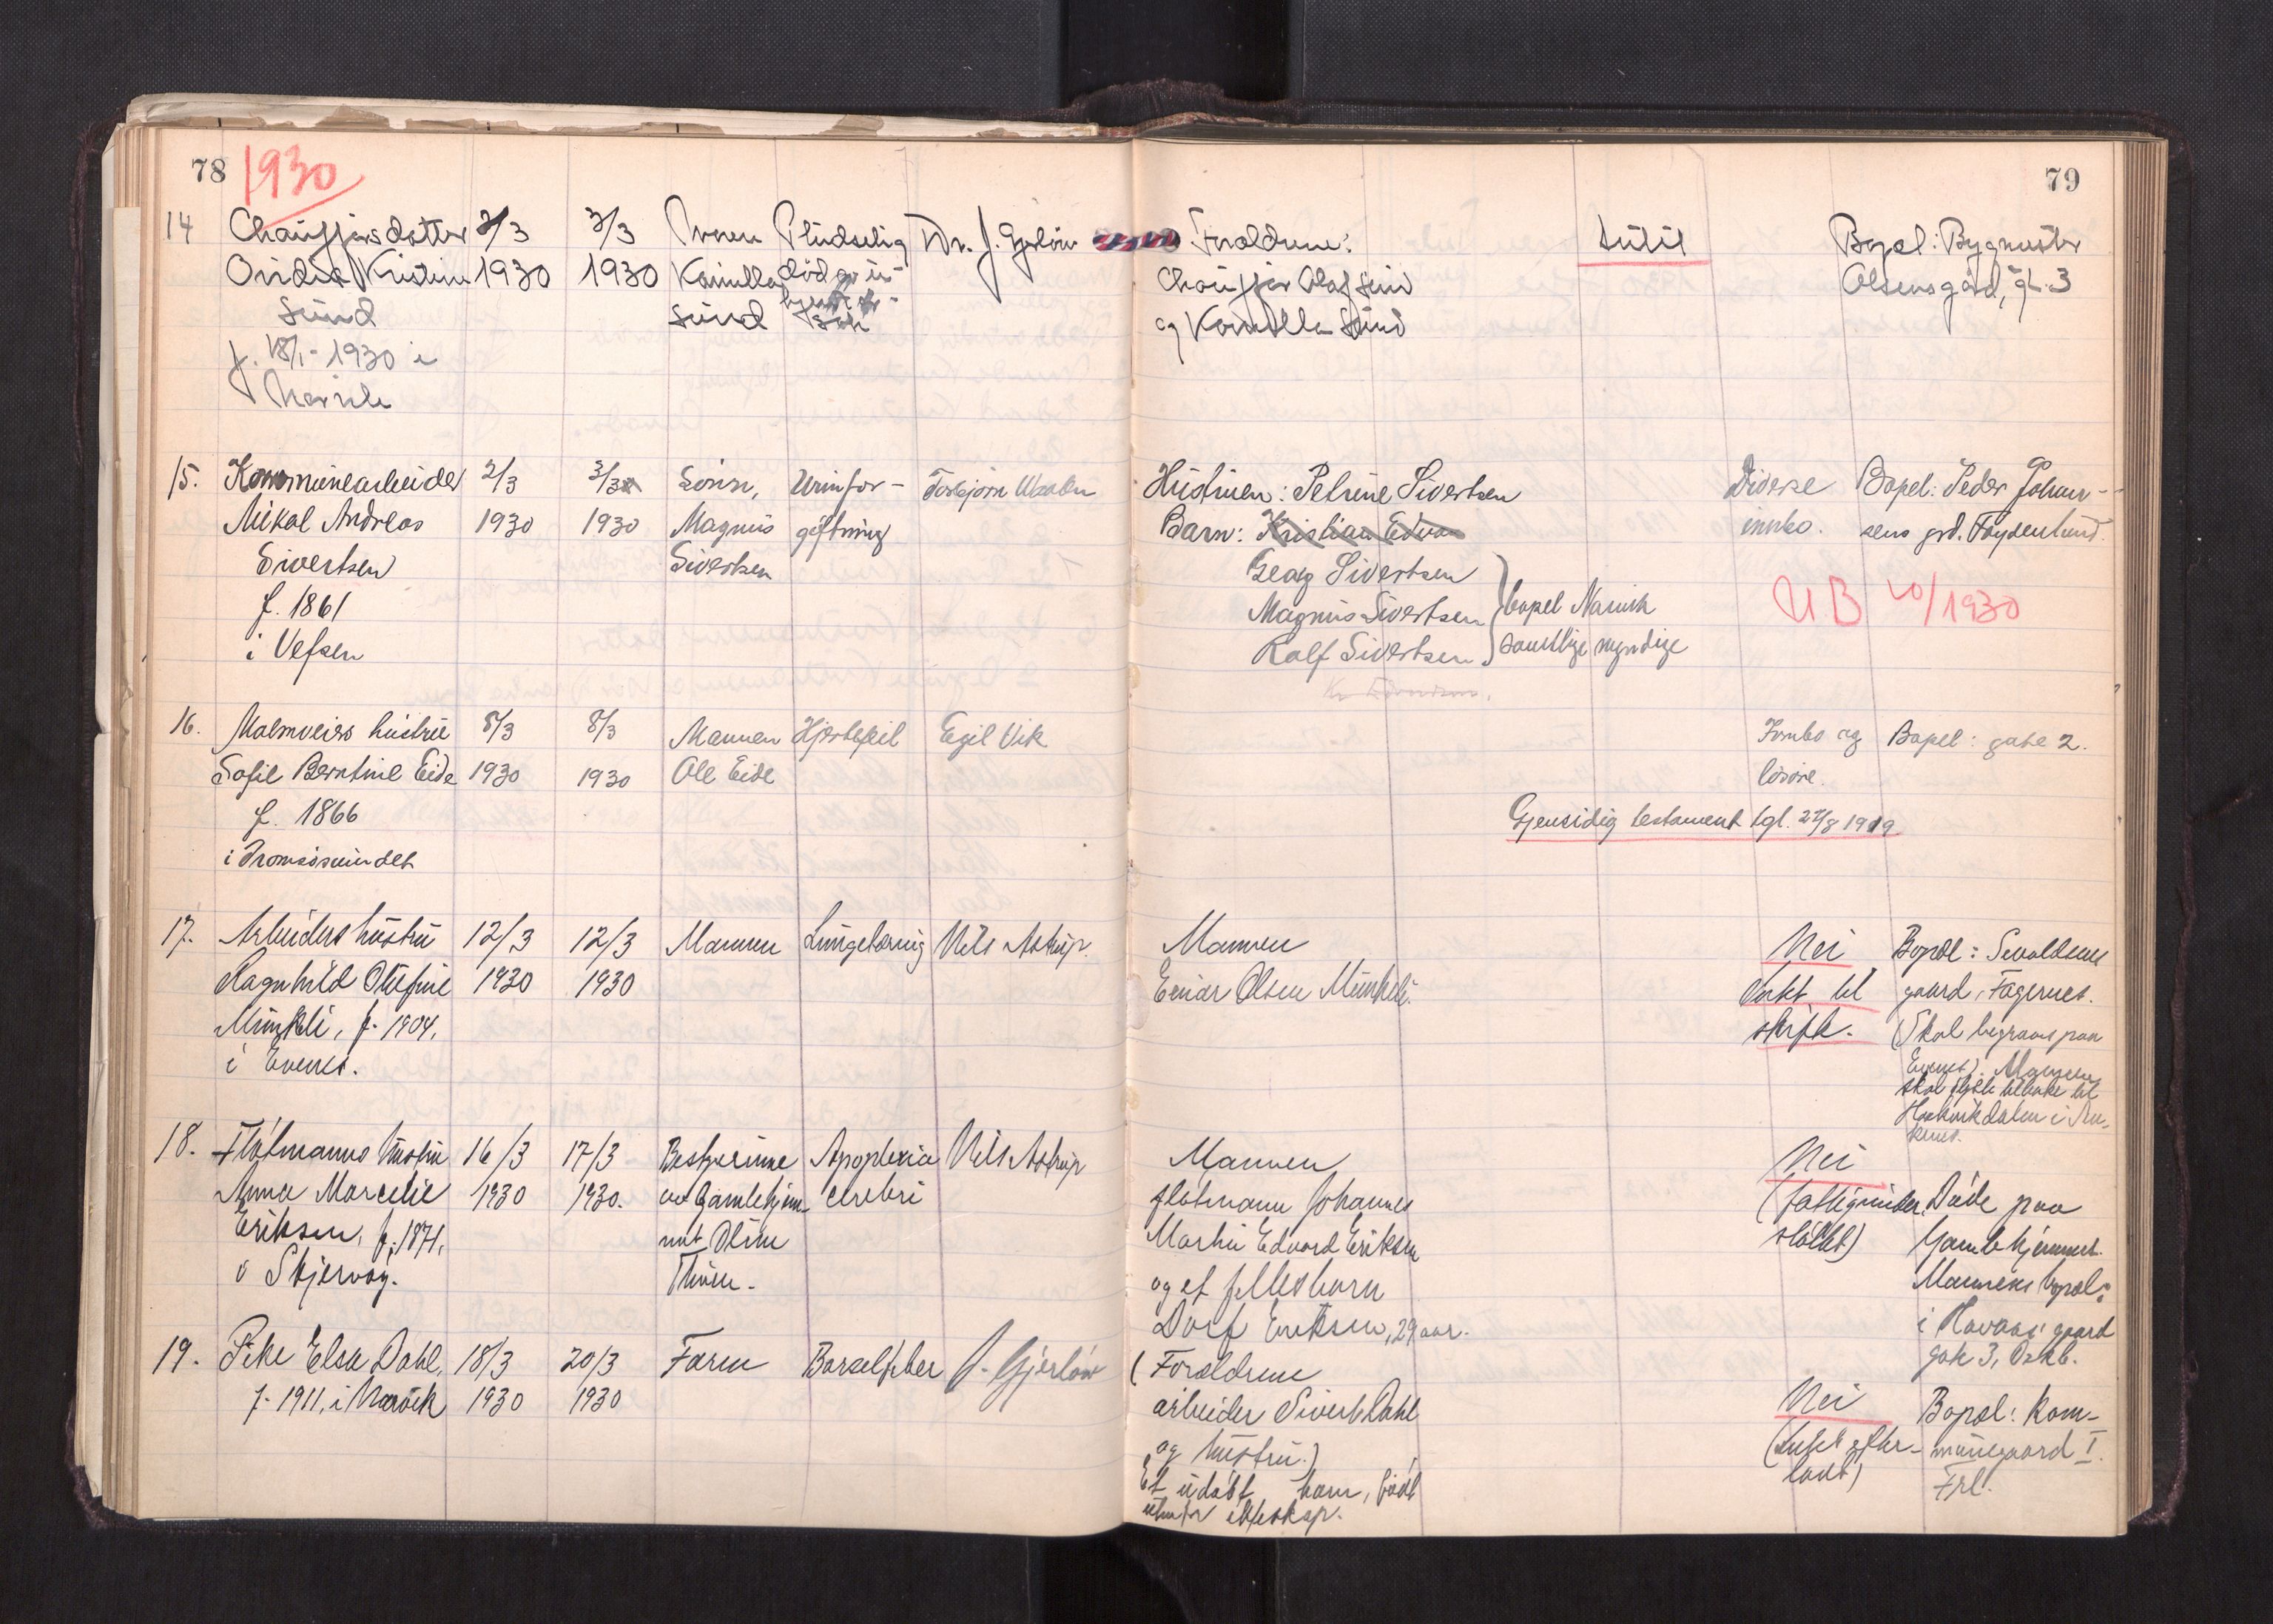 78
1930
79
14
Chaufførsdatter
Ovidia Kristine
Sund
f. 18/1-1930 i
Narvik
2/3
1930
3/3
1930
Moren
Kamilla
Sund
Pludselig
død av u-
Dr. J. Gjerløw
Forældrene:
Chauffør Olaf Sund
og Kamilla Sund
Intet
Bopel: Bygmester
Olsens gård, gt. 3
15.
Kommunearbeider
Mikal Andreas
Sivertsen
f. 1861
i Vefsen
2/3
1930
3/3
1930
Sønn,
Magnus
Sivertsen
Urinfor-
giftning
Torbjørn
Hustruen: Petrine Sivertsen
Barn: Kristian Edva
Georg Sivertsen
Magnus Sivertsen
Rolf Sivertsen
bopel Narvik
samtlige myndige
Diverse
innbo.
Bopel: Peder Johan-
sens grd. Frydenlund.
UB 40/1930
16.
Malmveiers hustru
Sofie Berntine Eide
f. 1866
i Tromsøsundet
8/3
1930
8/3
1930
Mannen
Ole Eide
Hjertefeil
Egil Vik
Innbo og
løsøre.
Bopel: gate 2.
Gjensidig testament tgl. 22/8 1919
17.
Arbeiders hustru
Ragnhild Olufine
Munkli, f. 1904,
i Evenes.
12/3
1930
12/3
1930
Mannen
Lungetæring
Nils Astrup.
Mannen
Einar Olsen Munkli.
Nei
Enkt. til
skifte.
Bopæl: Sivaldsens
gaard, Fagernes.
(Skal begraves paa
Evenes). Mannen
skal flytte tilbake til
Haakvikdalen i An-
kenes.
18.
Flåtmanns hustru
Anna Marcelie
Eriksen, f. 1871,
i Skjervøy.
16/3
1930
17/3
1930.
Bestyrerinne
av Gamlehjem-
met Oline
Thuen.
Apoplexia
cerebri
Nils Astrup
Mannen
flåtmann Johannes
Martin Edvard Eriksen
og et fellesbarn
Dorf Eriksen, 29 aar.
Nei
(fattigunder-
støttet)
Døde paa
Gamlehjemmet.
Mannens bopæl:
i Havaas' gaard
gate 3, Oskb.
19.
Pike Elsa Dahl,
f. 1911, i Narvik
18/3
1930
20/3
1930
Faren
Barselfeber
J. Gjerløw
(Forældrene
arbeider Sivert Dahl
og hustru.)
Et udøbt barn, født
utenfor ekteskap.
Nei
(Intet efter-
latt)
Bopæl: Kom-
munegaard I.
Frl.